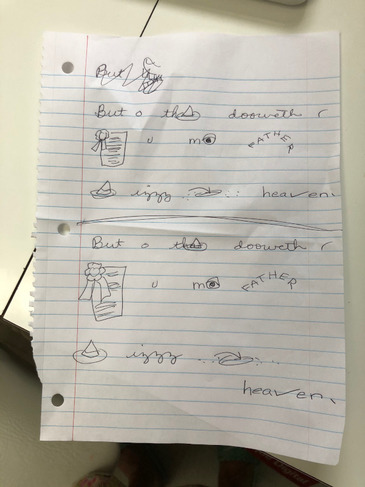 But
But o th doorweth (
u m FATHER
izzz heaven.
But o th dooweth (
u m FATHER
izzz
heaven.